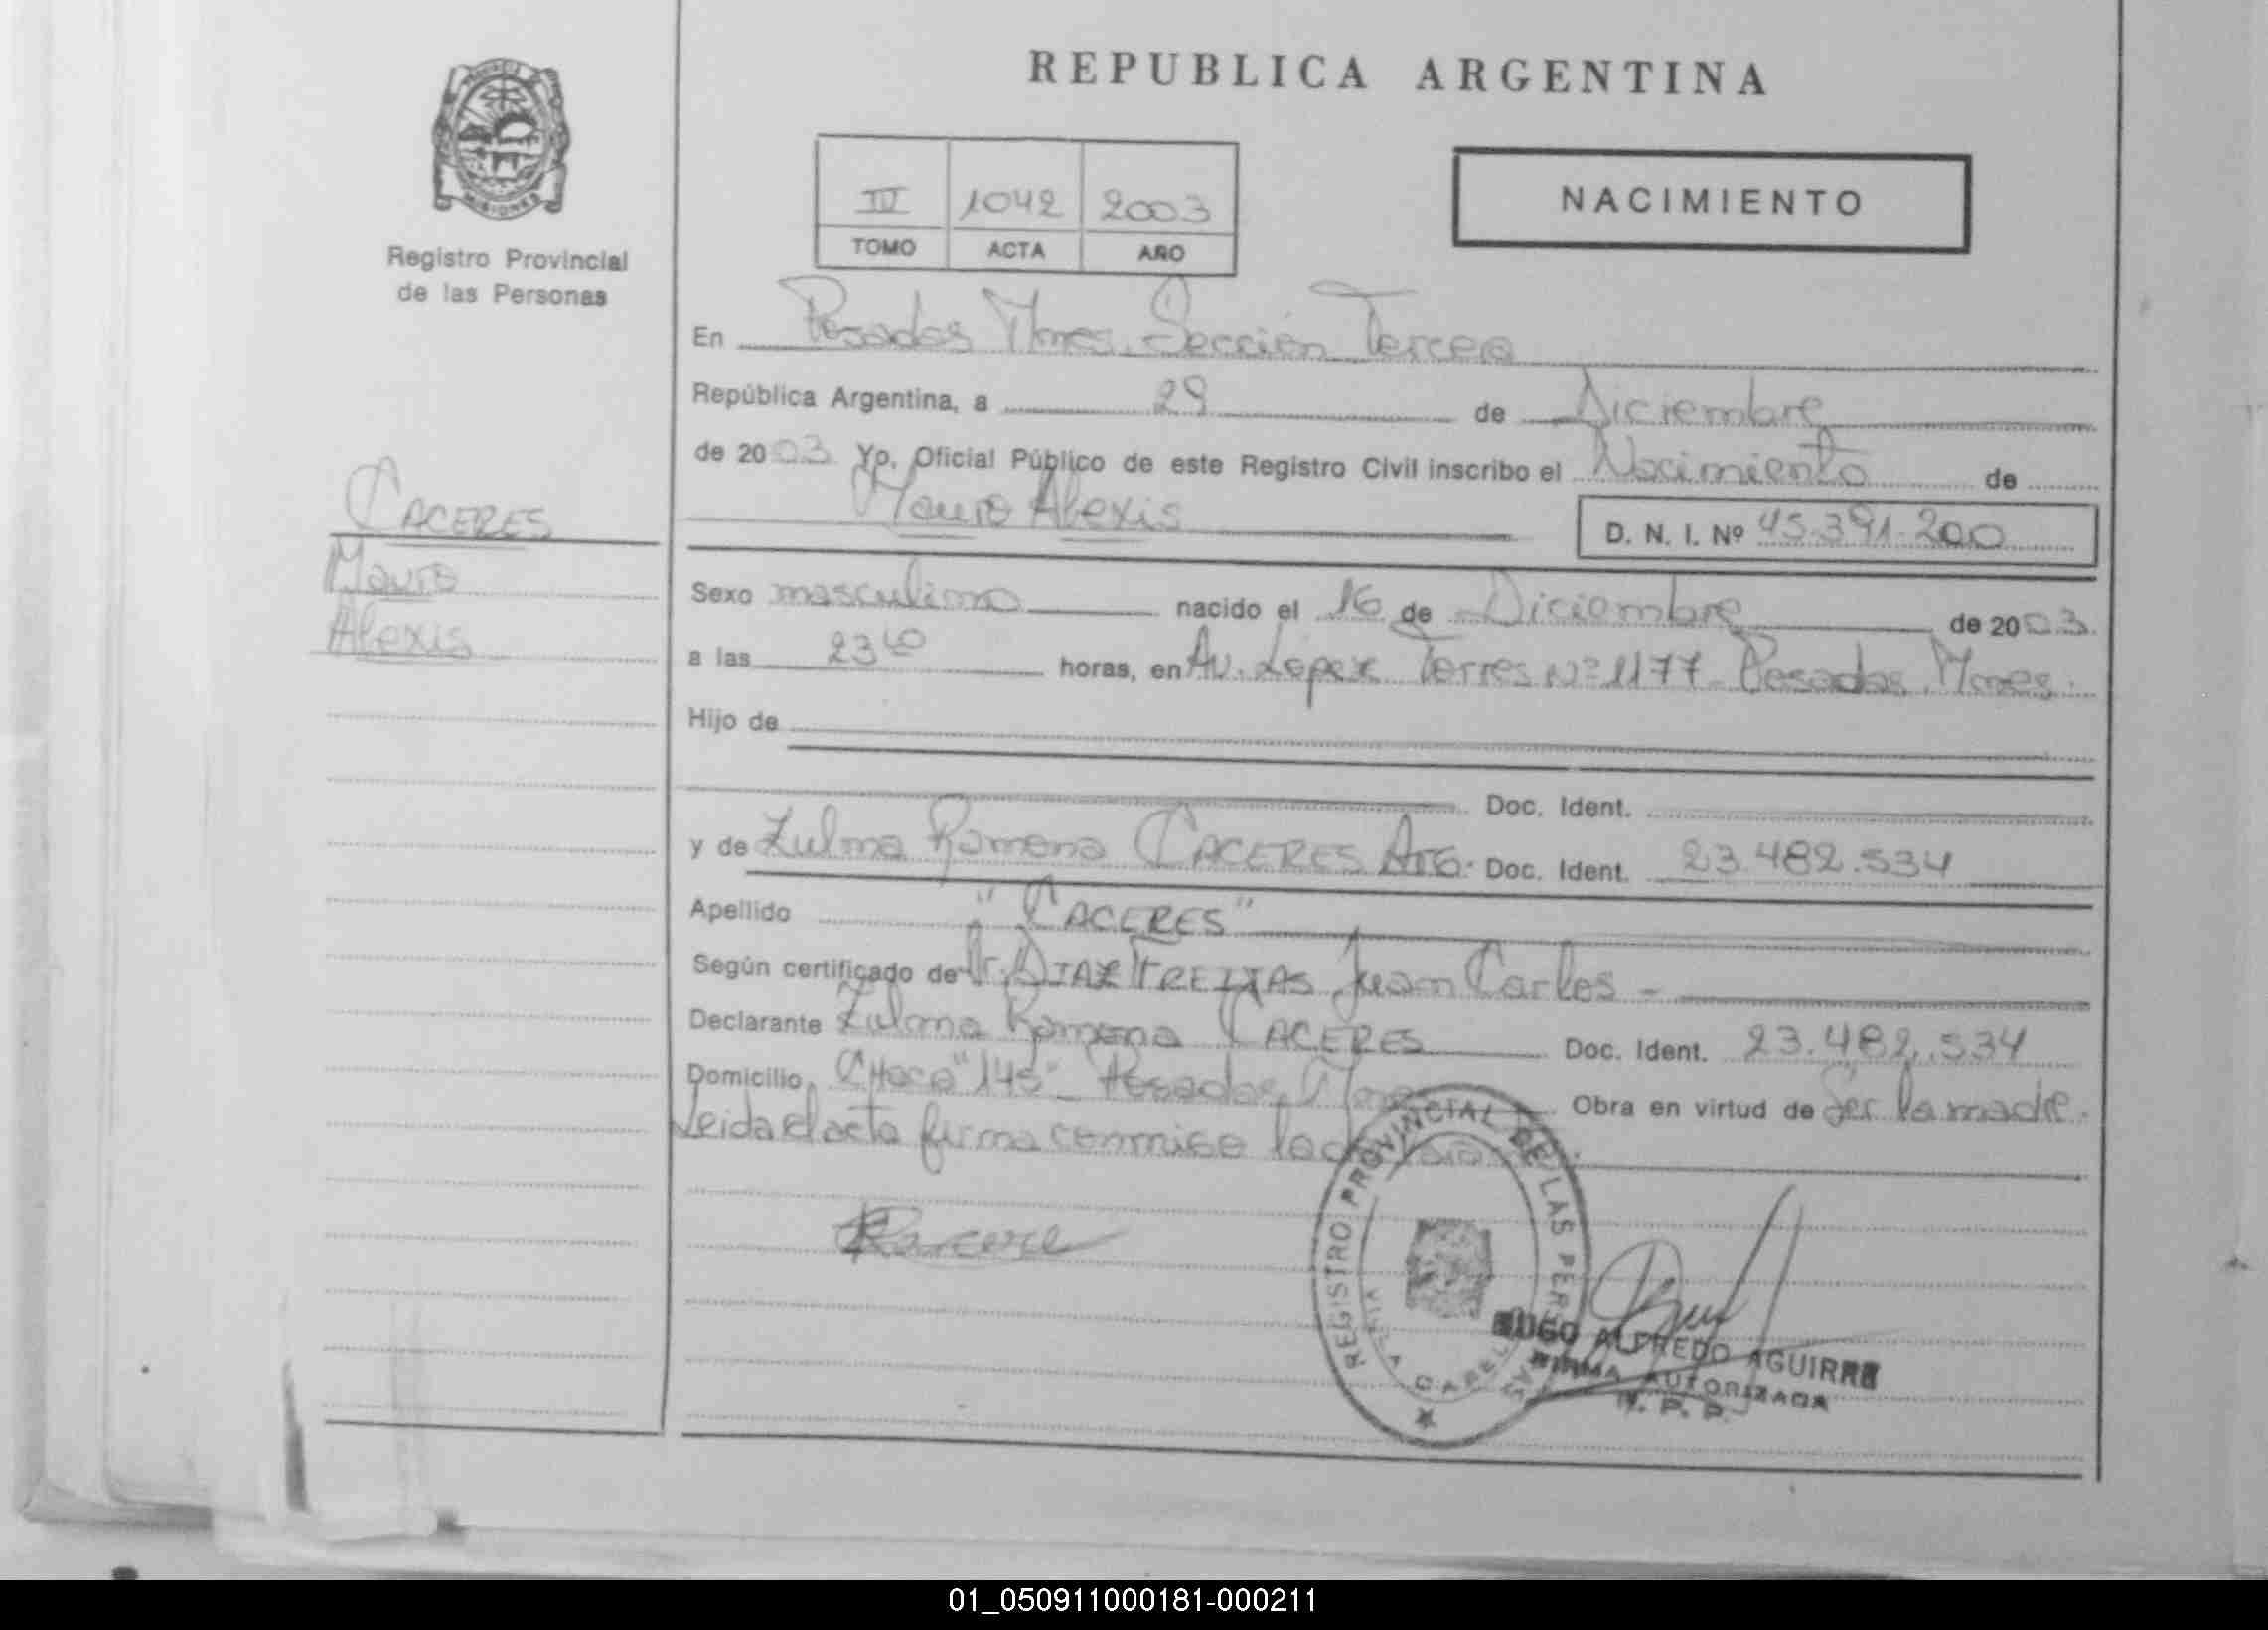 REPUBLICA ARGENTINA
PROVINCIA
MISIONES
Registro Provincial
de las Personas
III 1042 2003
TOMO ACTA AÑO
NACIMIENTO
En Posadas Mnes. Sección Tercera
República Argentina, a 29 de Diciembre
de 2003 Yo, Oficial Público de este Registro Civil inscribo el Nacimiento de
Mauro Alexis
D. N. I. Nº 45.391.200
CACERES
Mauro
Alexis
Sexo masculino nacido el 16 de Diciembre de 2003
a las 23 40 horas, en Av. Lopez Torres Nº 1177 - Posadas, Mnes.
Hijo de
Doc. Ident.
y de Zulma Ramona CACERES Arg. Doc. Ident. 23.482.534
Apellido "CACERES"
Según certificado de Dr. DIAZ FREITAS Juan Carlos -
Declarante Zulma Ramona CACERES Doc. Ident. 23.482.534
Domicilio Chaca "145" - Posadas, Mnes Obra en virtud de Ser la madre.
Leida el acta firma conmigo la
REGISTRO PROVINCIAL DE LAS PERSONAS
HUGO ALFREDO AGUIRRE
FIRMA AUTORIZADA
R. P. P.
01_050911000181-000211